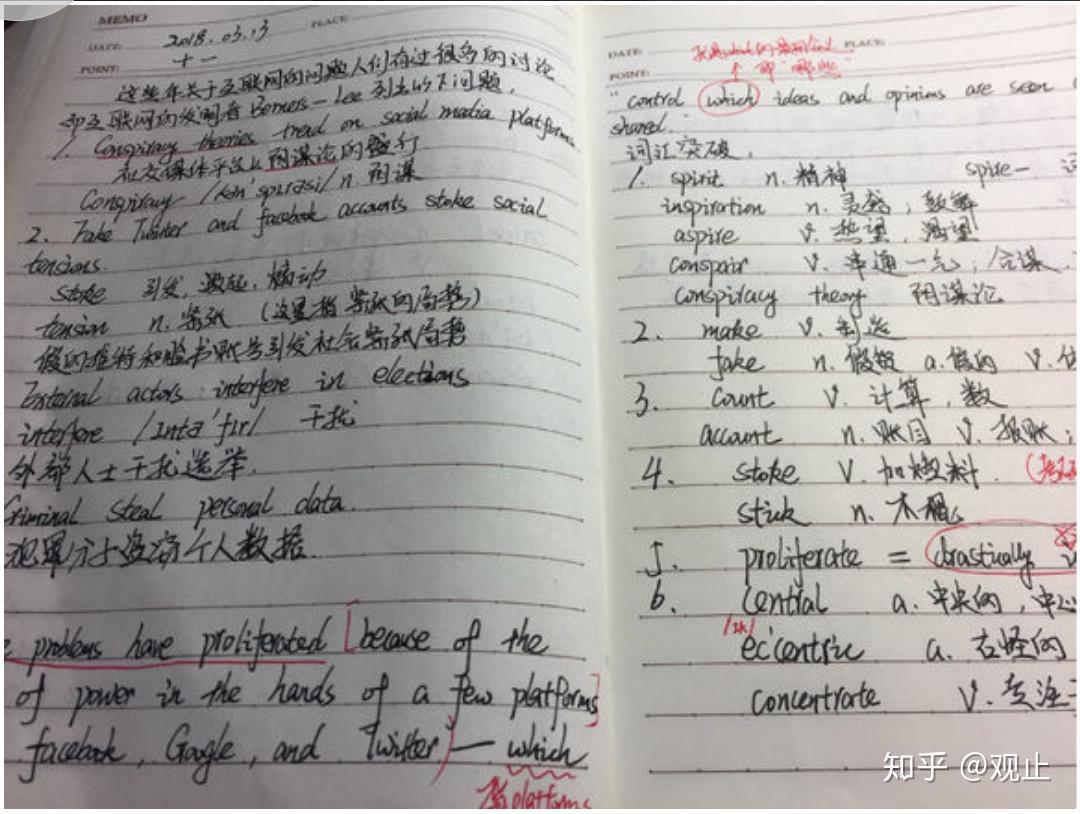 MEMO
DATE: 2018.03.13 PLACE:
十一
POINT:
这些年关于互联网的问题人们有过很多的讨论
即互联网的发明者 Berners-Lee 列出的下问题,
1. Conspiracy theories trend on social media platforms.
在社交媒体平台上阴谋论的盛行
Conspiracy /kən'spɪrəsi/ n. 阴谋
2. Fake Twitter and facebook accounts stoke social
tensions.
stoke 引发, 激起, 煽动
tension n. 紧张 (这里指紧张的局势)
假的推特和脸书账号引发社会紧张局势
External actors interfere in elections
interfere /ɪntə'fɪr/ 干扰
外部人士干扰选举.
Criminal steal personal data.
犯罪分子盗窃个人数据.
problems have proliferated [because of the
of power in the hands of a few platforms]
facebook, Google, and Twitter) — which
指platforms
DATE: PLACE:
↑ 即"哪些"
POINT:
"control which ideas and opinions are seen
shared.
词汇突破.
1. spirit n. 精神 spire-
inspiration n. 灵感, 鼓舞
aspire v. 热望, 渴望
conspair v. 串通一气, 合谋.
conspiracy theory 阴谋论
2. make v. 制造
fake n. 假货 a. 假的 v.
3. count v. 计算, 数
account n. 账目 v. 报账;
4. stoke v. 加燃料.
stick n. 木棍
5. proliferate = drastically
6. central a. 中央的, 中心
ec'centric a. 古怪的
concentrate v. 专注
知乎 @观止